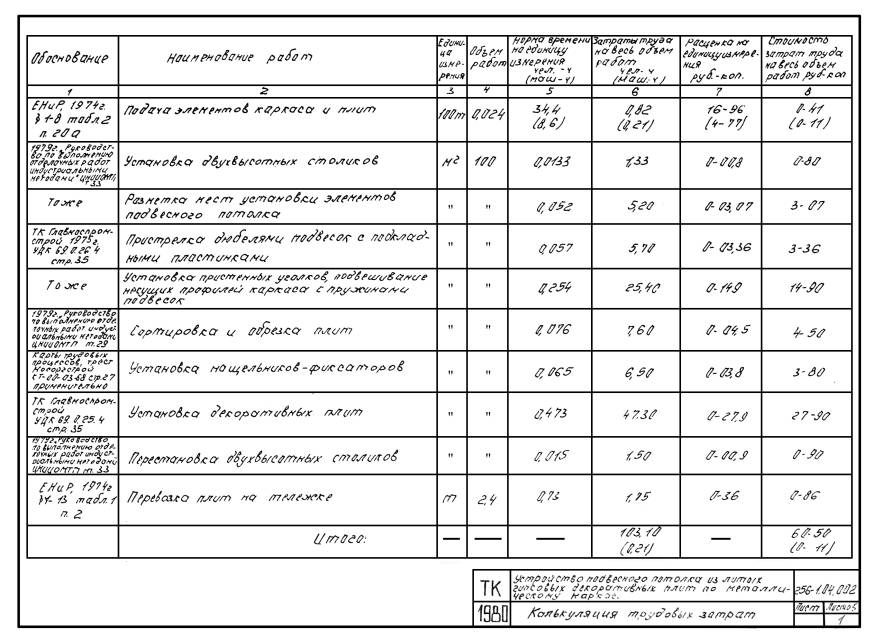 Обоснование
Наименование работ
Едини-
ца
изме-
рения
Объем
работ
Норма времени
на единицу
измерения
чел. - ч
(маш-ч)
Затраты труда
на весь объем
работ
чел. ч
(маш.ч)
Расценка на
единицу измере-
ния
руб-коп.
Стоимость
затрат труда
на весь объем
работ руб-коп
1 2 3 4 5 6 7 8
ЕНиР, 1974г.
§1-8 табл.2
п. 20а
Подача элементов каркаса и плит
100т 0,024 34,4 0,82 16-96 0-41
(8,6) (0,21) (4-77) (0-11)
1979г. „Руководст-
во по выполнению
отделочных работ
индустриальными
методами" ЦНИИОМТП,
т. 33
Установка двухвысотных столиков
м² 100 0,0133 1,33 0-00,8 0-80
То же
Разметка мест установки элементов
подвесного потолка
" " 0,052 5,20 0-03,07 3-07
ТК Главноспром-
строй 1975г.
УДК 69.0.26.4
стр. 35
Пристрелка дюбелями подвесок с подклад-
ными пластинками
" " 0,057 5,70 0-03,36 3-36
То же
Установка пристенных уголков, подвешивание
несущих профилей каркаса с пружинами
подвесок
" " 0,254 25,40 0-14,9 14-90
1979г. „Руководство
по выполнению отде-
лочных работ индуст-
риальными методами
ЦНИИОМТП т. 29
Сортировка и обрезка плит
" " 0,076 7,60 0-04,5 4-50
Карты трудовых
процессов, трест
Мооргстрой
КТ-00-03-68 стр.27
применительно
Установка нащельников-фиксаторов
" " 0,065 6,50 0-03,8 3-80
ТК Главноспром-
строй
УДК 69.0.25.4
стр. 35
Установка декоративных плит
" " 0,473 47.30 0-27,9 27-90
1979г. „Руководство
по выполнению отде-
лочных работ индуст-
риальными методами
ЦНИИОМТП т. 33
Перестановка двухвысотных столиков
" " 0,015 1,50 0-00,9 0-90
ЕНиР, 1974г
§1-13 табл. 1
п. 2
Перевозка плит на тележке
т 2,4 0,73 1,75 0-36 0-86
Итого: — — — 103,10 — 60-50
(0,21) (0-11)
ТК
1980
Устройство подвесного потолка из литых
гипсовых декоративных плит по металли-
ческому каркасу.
256-1.04.002
Калькуляция трудовых затрат
Лист Листов
1